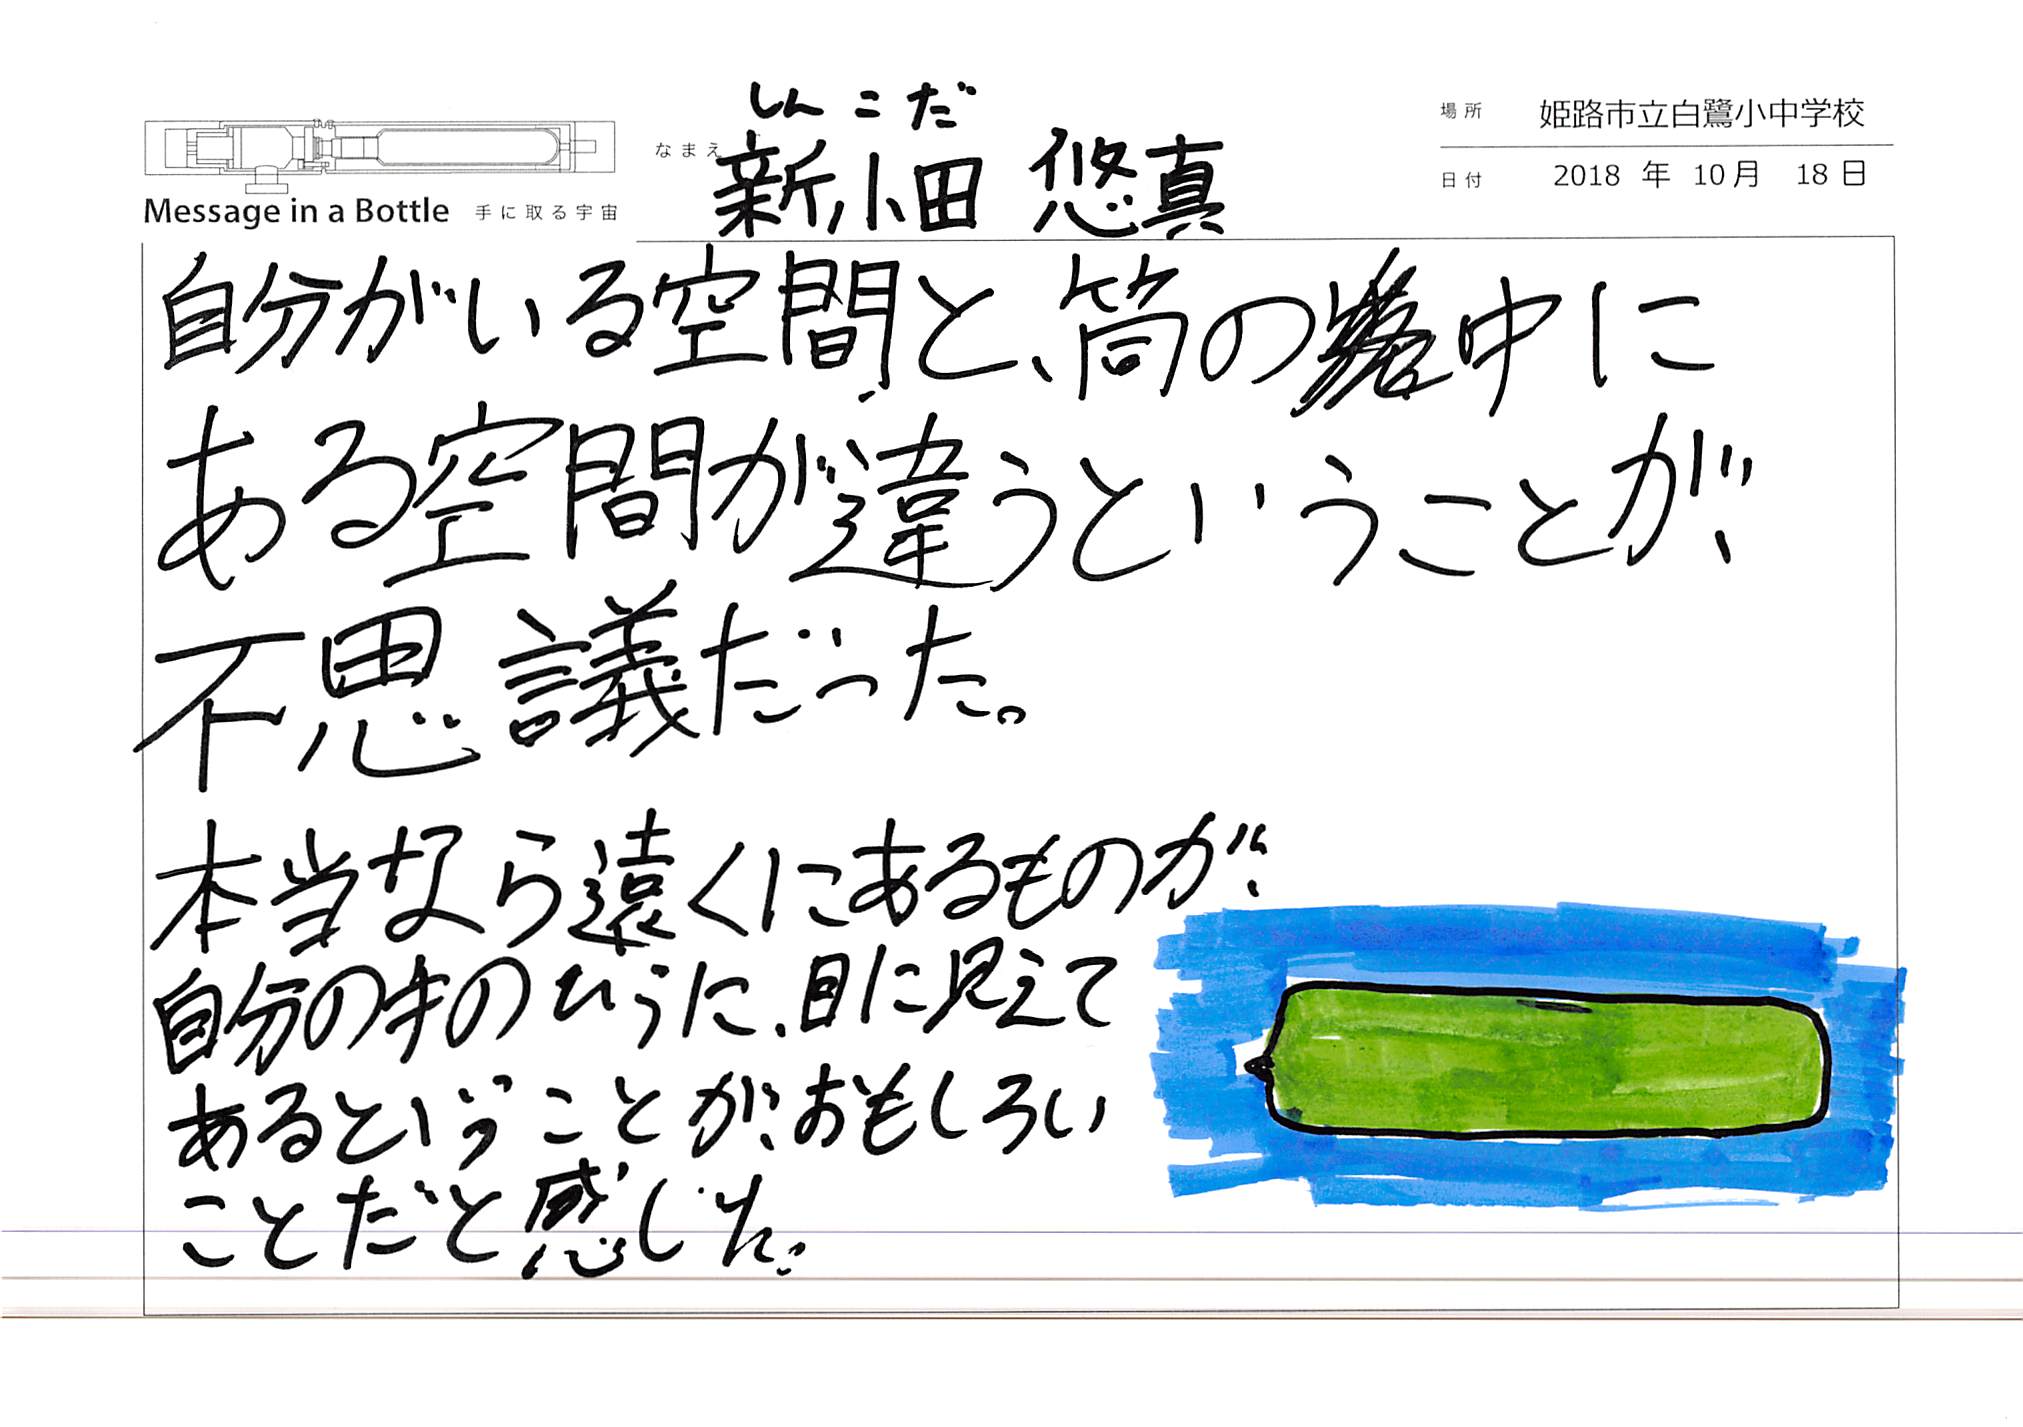 しんこだ
なまえ 新小田 悠真
場所 姫路市立白鷺小中学校
日付 2018 年 10月 18日
Message in a Bottle 手に取る宇宙
自分がいる空間と、筒の中に
ある空間が違うということが、
不思議だった。
本当なら遠くにあるものが、
自分の手のひらに、目に見えて
あるということが、おもしろい
ことだと感じた。